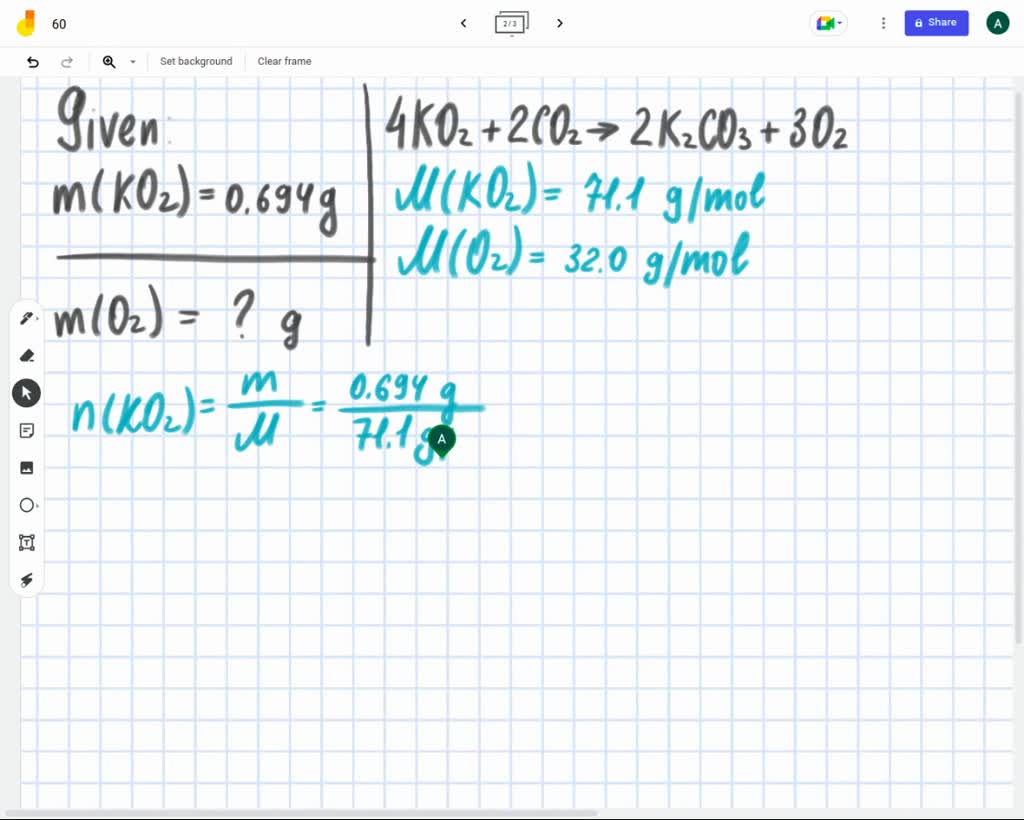 60
2/3
Share
A
Set background
Clear frame
Given:
m(KO₂) = 0.694g
m(O₂) = ? g
4KO₂ + 2CO₂ → 2K₂CO₃ + 3O₂
M(KO₂) = 71.1 g/mol
M(O₂) = 32.0 g/mol
n(KO₂) = m/M = 0.694 g / 71.1 g
A